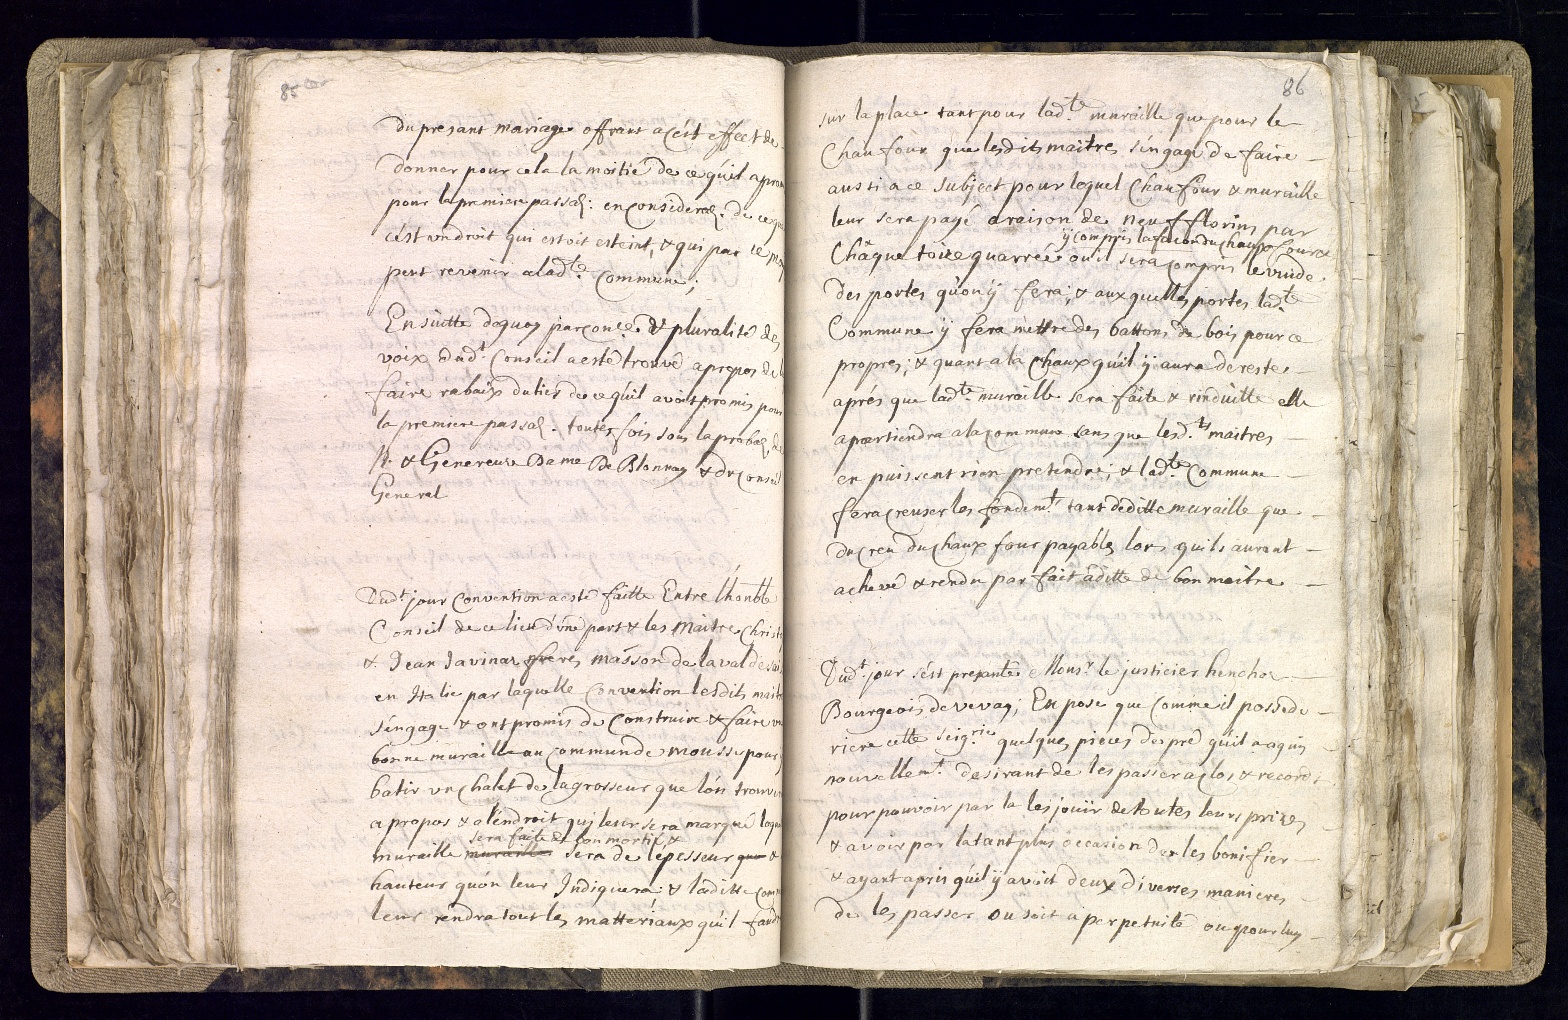 85
du presant mariage offrant a cést effect de
donner pour cela la moitié de ce qúil a prom
pour la premiere passaõ: en consideraõ: de ce que
cést un droit qui estoit esteint, & qui par ce
peut revenir a lad.te Commune;
Ensuitte dequoy par & pluralité des
voix dudt. Conseil a esté trouvé a propos de
faire rabaix du tier de ce qúil avoit promis pour
la premiere passaõ. toutes fois sous la probaõ de
N. & Genereuse Dame De Blonnay & du Conseil
General
Dudt. jour Convention a esté faitte Entre lhonble
Conseil de ce lieu dúne part & les Maitre Christ
& Jean Javinaz freres masson de la val de
en Italie par laquelle Convention lesdits maitre
séngage & ont promis de Construire & faire une
bonne muraille au Commun de mousse pour
batir un Chalet de la grosseur que lón trouvera
a propos & a léndroit qui leur sera marqué
sera faite et bon mortié &
muraille muraille sera de lepesseur que &
hauteur quón leur Indiquera & laditte Com
leur rendra tout les matteriaux qúil faud
86
sur la place tant pour lad.te muraille que pour le
Chaufour que lesdits maitres séngage de faire
aussi a ce subject pour lequel Chaufour & muraille
leur sera payé a raison de neuf florins par
ÿ compris la facon du chauxfour
Châque toise quarrée ou il sera compris le vuide
des portes quón ÿ fera; & aux quelles portes lad.te
Commune ÿ fera mettre des battons de bois pour ce
propres; & quant a la Chaux qúil ÿ aura de reste
aprés que lad.te muraille sera faite & rinduitte elle
apartiendra a la commune sans que lesd.ts maitres
en puissent rien pretendre; & lad.te Commune
fera creuser les fondemt. tant deditte muraille que
du creu du chaux four payables lors quils auront
achevé & rendu par fait a ditte de bon maitre
Dudt. jour sést presanté Monsr. le justicier henchoz
Bourgeois de vevay, Expose que Comme il possede
riere cette seigrie. quelques pieces de pré qúil a aquis
nouvellemt. desirant de les passer a clos & record
pour pouvoir par la les jouïr de toutes leurs prises
& avoir par la tant plus óccasion de les bonifier
& ayant apris qúil ÿ avoit deux diverses manieres
de les passer ou soit a perpetuité ou pour luy